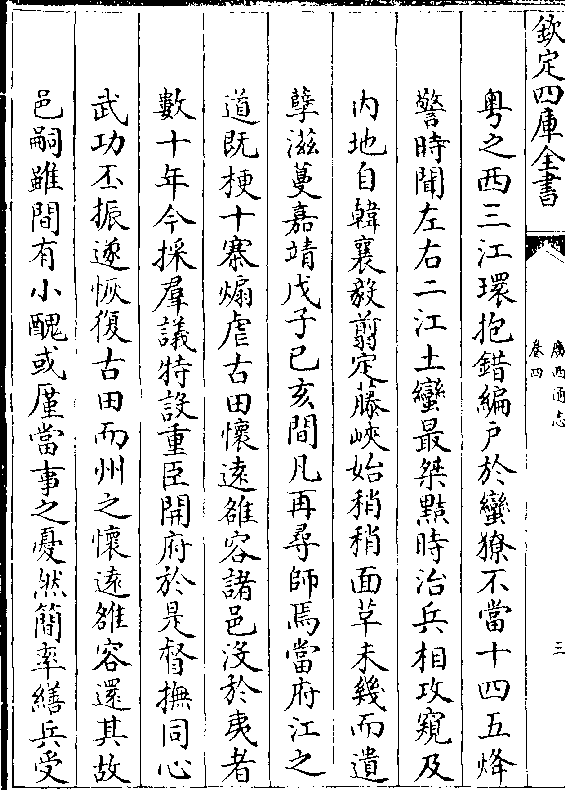 欽定四庫全書
廣西通志
卷四
三
粤之西三江環抱錯編户於蠻獠不當十四五烽
警時聞左右二江土蠻最桀黠時治兵相攻窺及
内地自韓襄毅翦定藤峽始稍稍面革未幾而遺
孽滋蔓嘉靖戊子已亥間凡再尋師焉當府江之
道既梗十寨煽虐古田懷遠雒容諸邑沒於夷者
數十年今採羣議特設重臣開府於是督撫同心
武功丕振遂恢復古田而州之懷遠雒容還其故
邑嗣雖間有小醜或厪當事之憂然簡率繕兵受